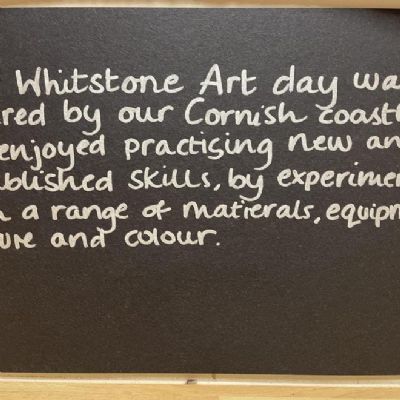 Whitstone Art day wa
red by our Cornish coastl
enjoyed practising new an
blished skills, by experimen
a range of matierals, equipm
ure and colour.